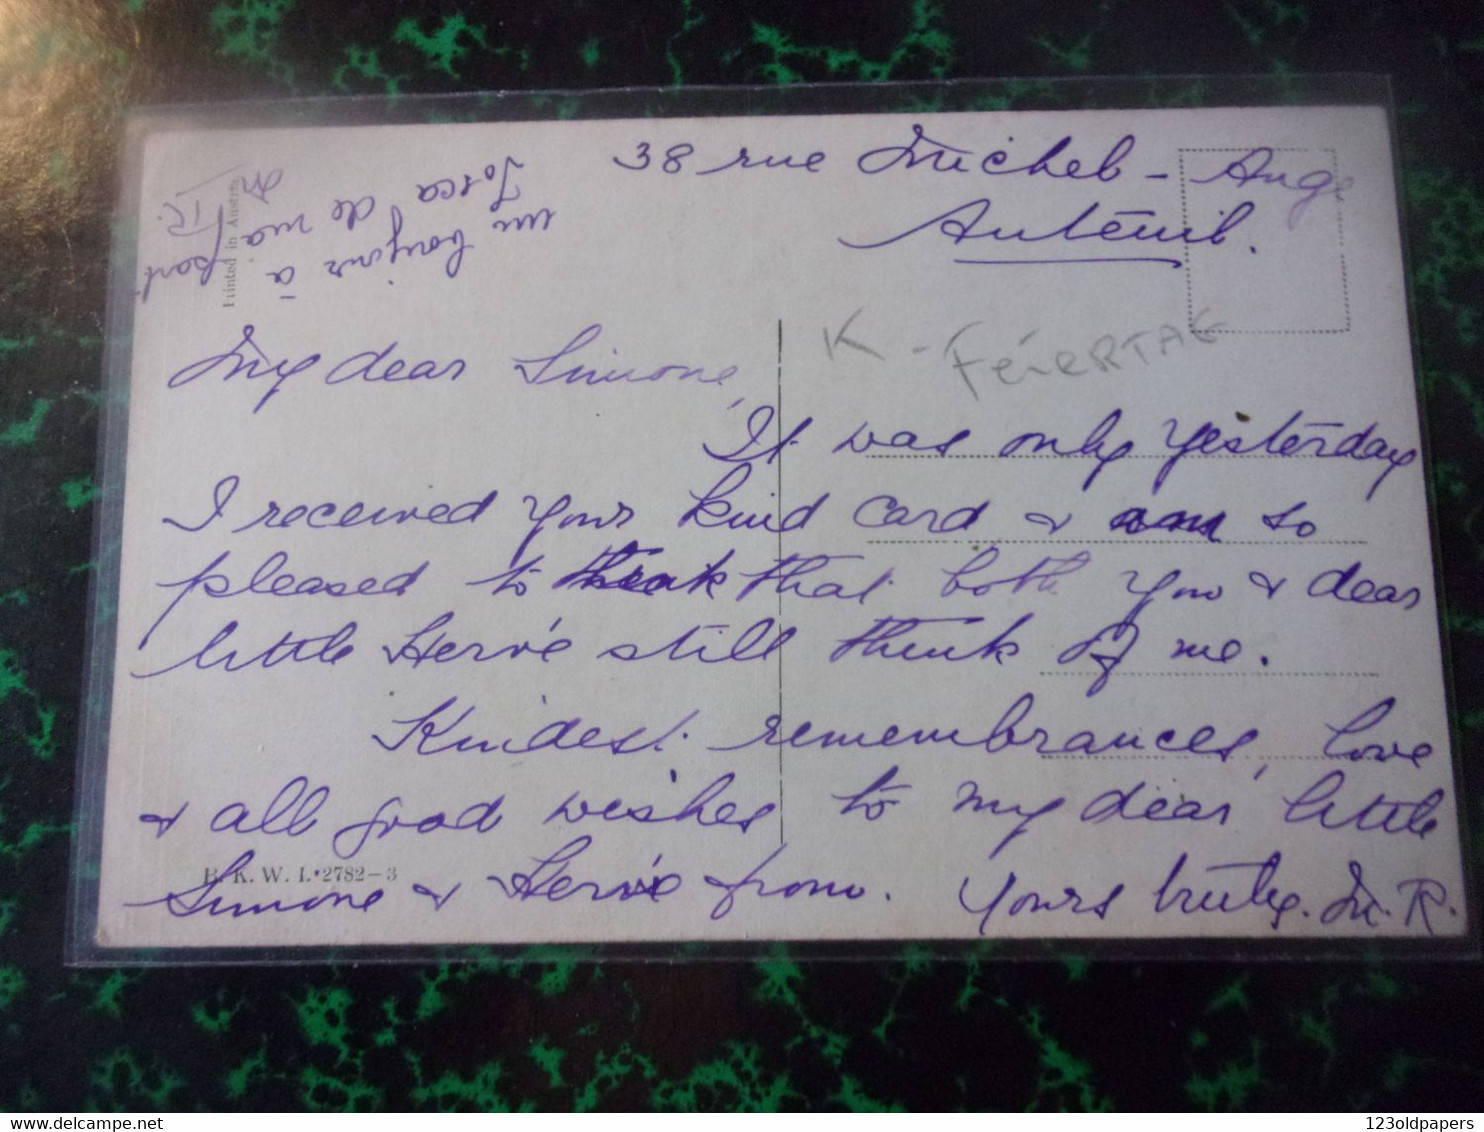 38 rue Michel-Ange
Auteuil.
un bonjour à
Tosca de ma part
M R.
Printed in Austria
K - FéiERTAG
My dear Simone,
It was only yesterday
I received your kind card & am so
pleased to think that both you & dear
little Hervé still think of me.
Kindest remembrances, love
& all good wishes to my dear little
Simone & Hervé from. Yours truly. M. R.
B. K. W. I. 2782-3
123oldpapers